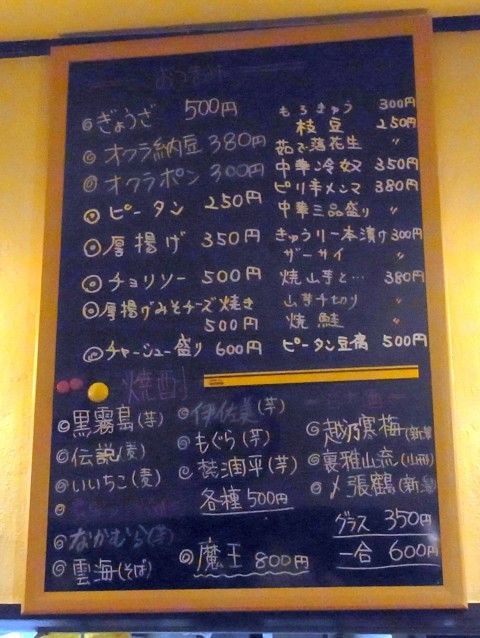 おつまみ
ぎょうざ 500円
オクラ納豆 380円
オクラポン 300円
ピータン 250円
厚揚げ 350円
チョリソー 500円
厚揚げみそチーズ焼き
500円
チャーシュー盛り 600円
もろきゅう 300円
枝豆 250円
茹で落花生 〃
中華冷奴 350円
ピリ辛メンマ 380円
中華三品盛り 〃
きゅうり一本漬け 300円
ザーサイ 〃
焼山芋と… 380円
山芋千切り 〃
焼鮭 〃
ピータン豆腐 500円
焼酎
黒霧島(芋)
伝説(麦)
いいちこ(麦)
なかむら(芋)
雲海(そば)
伊佐美(芋)
もぐら(芋)
潤平(芋)
各種500円
魔王 800円
越乃寒梅(新潟)
裏雅山流(山形)
〆張鶴(新潟)
グラス 350円
一合 600円